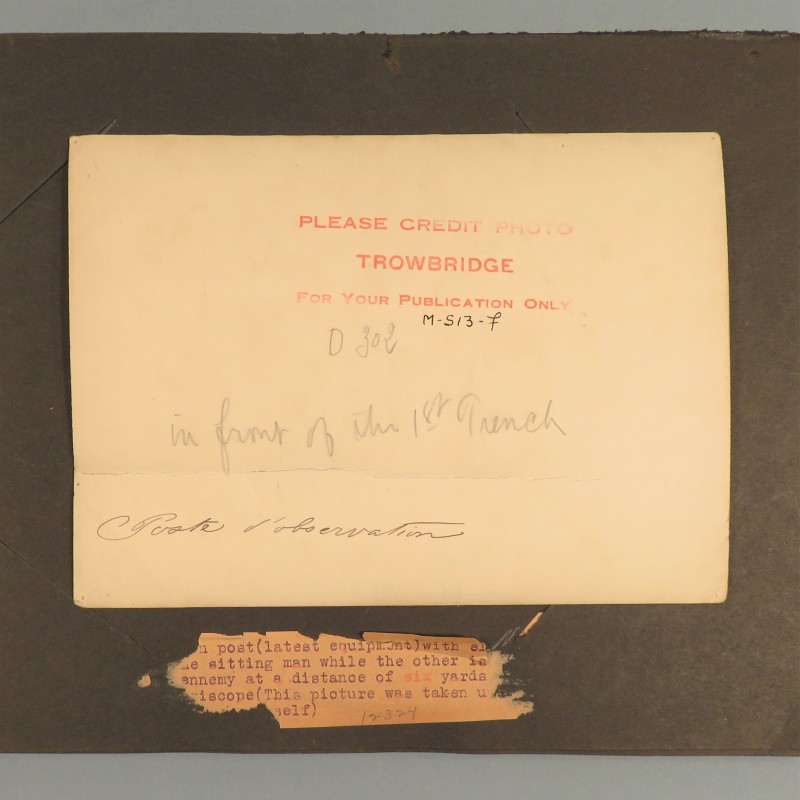 PLEASE CREDIT PHOTO
TROWBRIDGE
FOR YOUR PUBLICATION ONLY
M-513-7
D 302
in front of the 1st Trench
Poste d'observation
n post(latest equipment)with el
e sitting man while the other is
ennemy at a distance of six yards
iscope(This picture was taken u
self)
12324